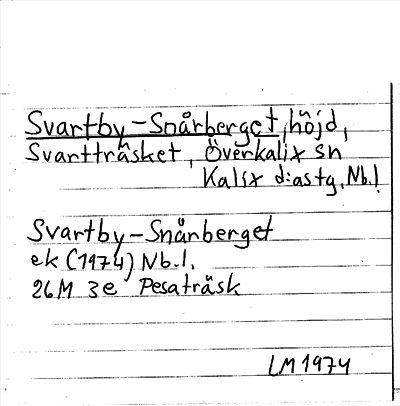 Svartby-Snårberget, höjd,
Svartträsket, Överkalix sn
Kalix d:astg, Nb.l
Svartby-Snårberget
ek (1974) Nb.l.
26M 3e Pesaträsk
LM 1974